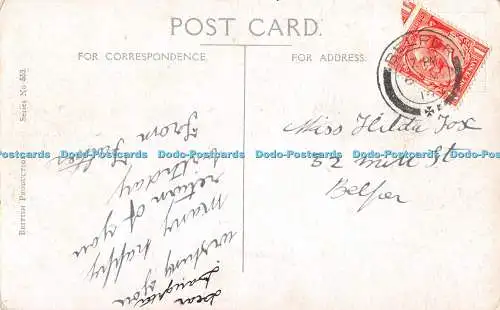 POST CARD.
FOR CORRESPONDENCE.
FOR ADDRESS.
BRITISH PRODUCTION
Series No 553
BELPER
Miss Hilda Fox
52 Mill St
Belper
Dear
Daughter
wishing you
many happy
return of your
Birthday
From Father
Dodo-Postcards Dodo-Postcards Dodo-Postcards Dodo-Postcards Dodo-Postcards